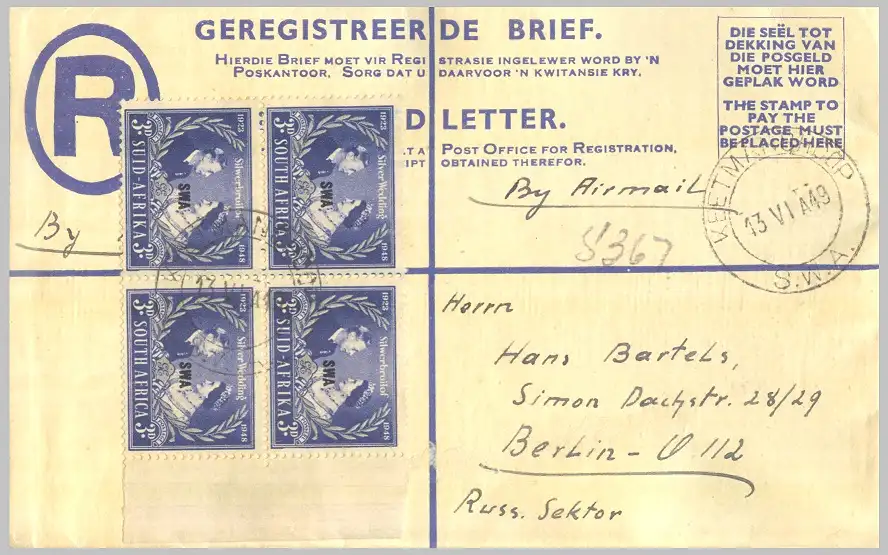 GEREGISTREERDE BRIEF.
HIERDIE BRIEF MOET VIR REGISTRASIE INGELEWER WORD BY 'N
POSKANTOOR. SORG DAT U DAARVOOR 'N KWITANSIE KRY.
R
D LETTER.
POST OFFICE FOR REGISTRATION,
OBTAINED THEREFOR.
DIE SEËL TOT
DEKKING VAN
DIE POSGELD
MOET HIER
GEPLAK WORD
THE STAMP TO
PAY THE
POSTAGE MUST
BE PLACED HERE
By Airmail
KEETMANSHOOP
13 VI A49
S.W.A.
S367
By
1923 Silwerbruilof 1948
SWA.
3D SUID-AFRIKA 3D
1923 Silver Wedding 1948
SWA.
3D SOUTH AFRICA 3D
1923 Silver Wedding 1948
SWA.
3D SOUTH AFRICA 3D
1923 Silwerbruilof 1948
SWA.
3D SUID-AFRIKA 3D
Herrn
Hans Bartels,
Simon Dachstr. 28/29
Berlin - O 112
Russ. Sektor